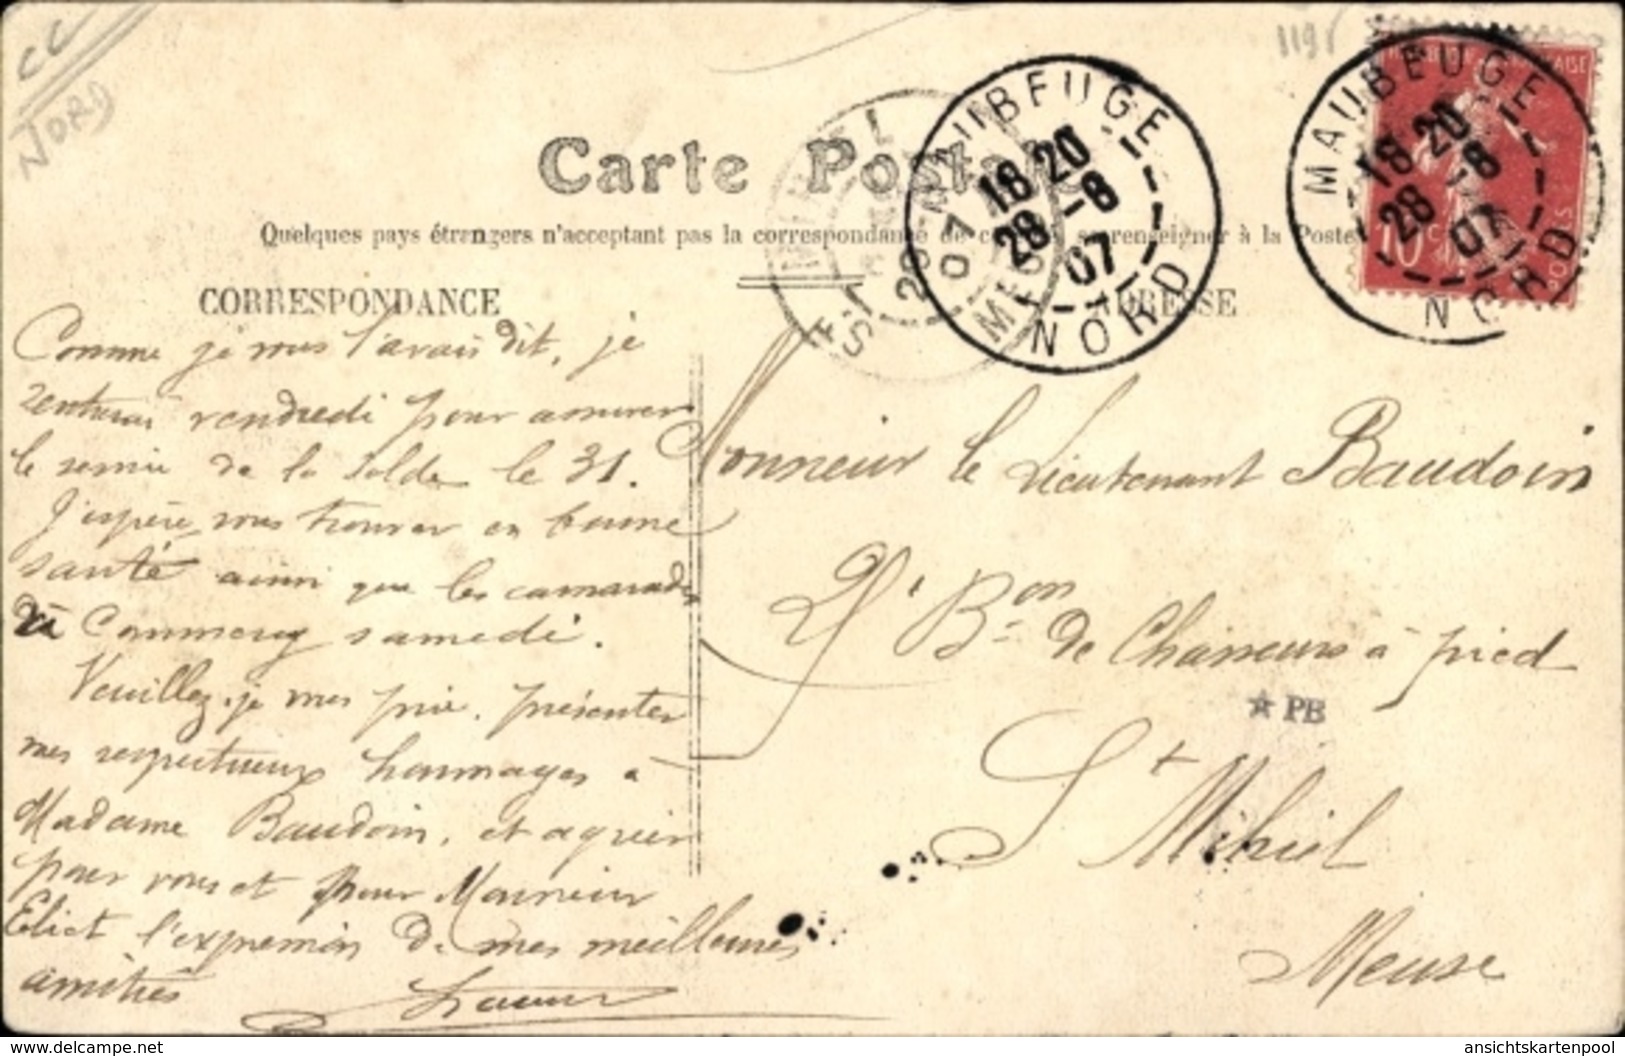 CC
NORD
1195
MAUBEUGE
18 20
28 -8
07
NORD
MAUBEUGE
18 20
28 -8
07
NORD
ST MIHIEL
29
07
MEUSE
10
Carte Postale
Quelques pays étrangers n'acceptant pas la correspondance de ce côté, se renseigner à la Poste
CORRESPONDANCE
ADRESSE
Comme je vous l'avais dit, je
rentrerai vendredi pour assurer
le service de la solde le 31.
J'espère vous trouver en bonne
santé ainsi que les camarades
à Commercy samedi.
Veuillez, je vous prie, présenter
mes respectueux hommages à
Madame Baudoin, et agréer
pour vous et pour Monsieur
Eliet l'expression de mes meilleures
amitiés
Monsieur le Lieutenant Baudoin
Bon de Chasseurs à pied
PE
St Mihiel
Meuse
delcampe.net
ansichtskartenpool